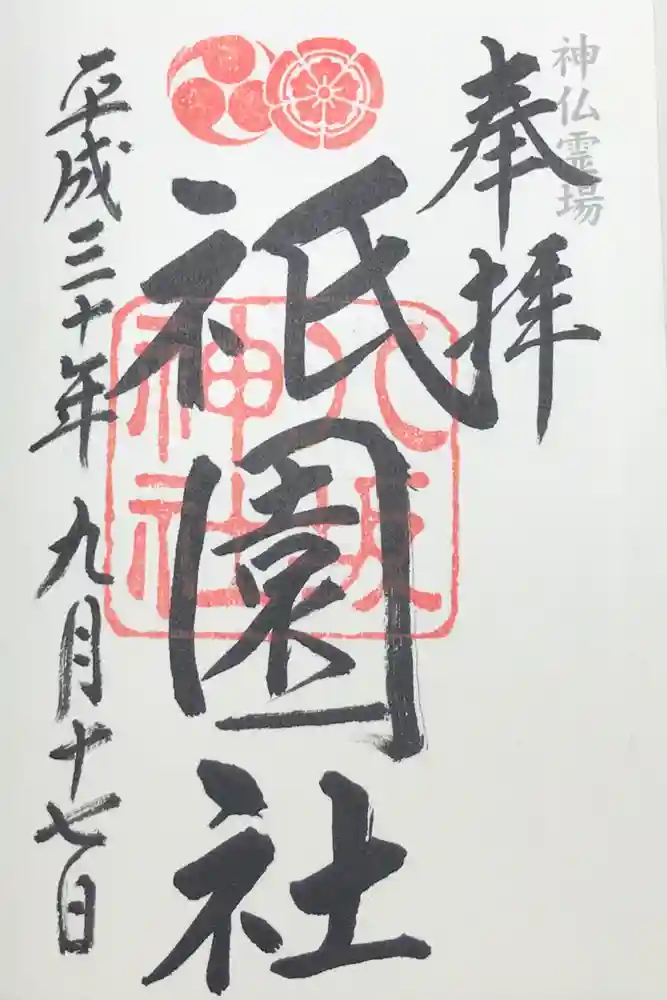 神仏霊場
奉拝
祇園社
八坂
神社
平成三十年 九月十七日